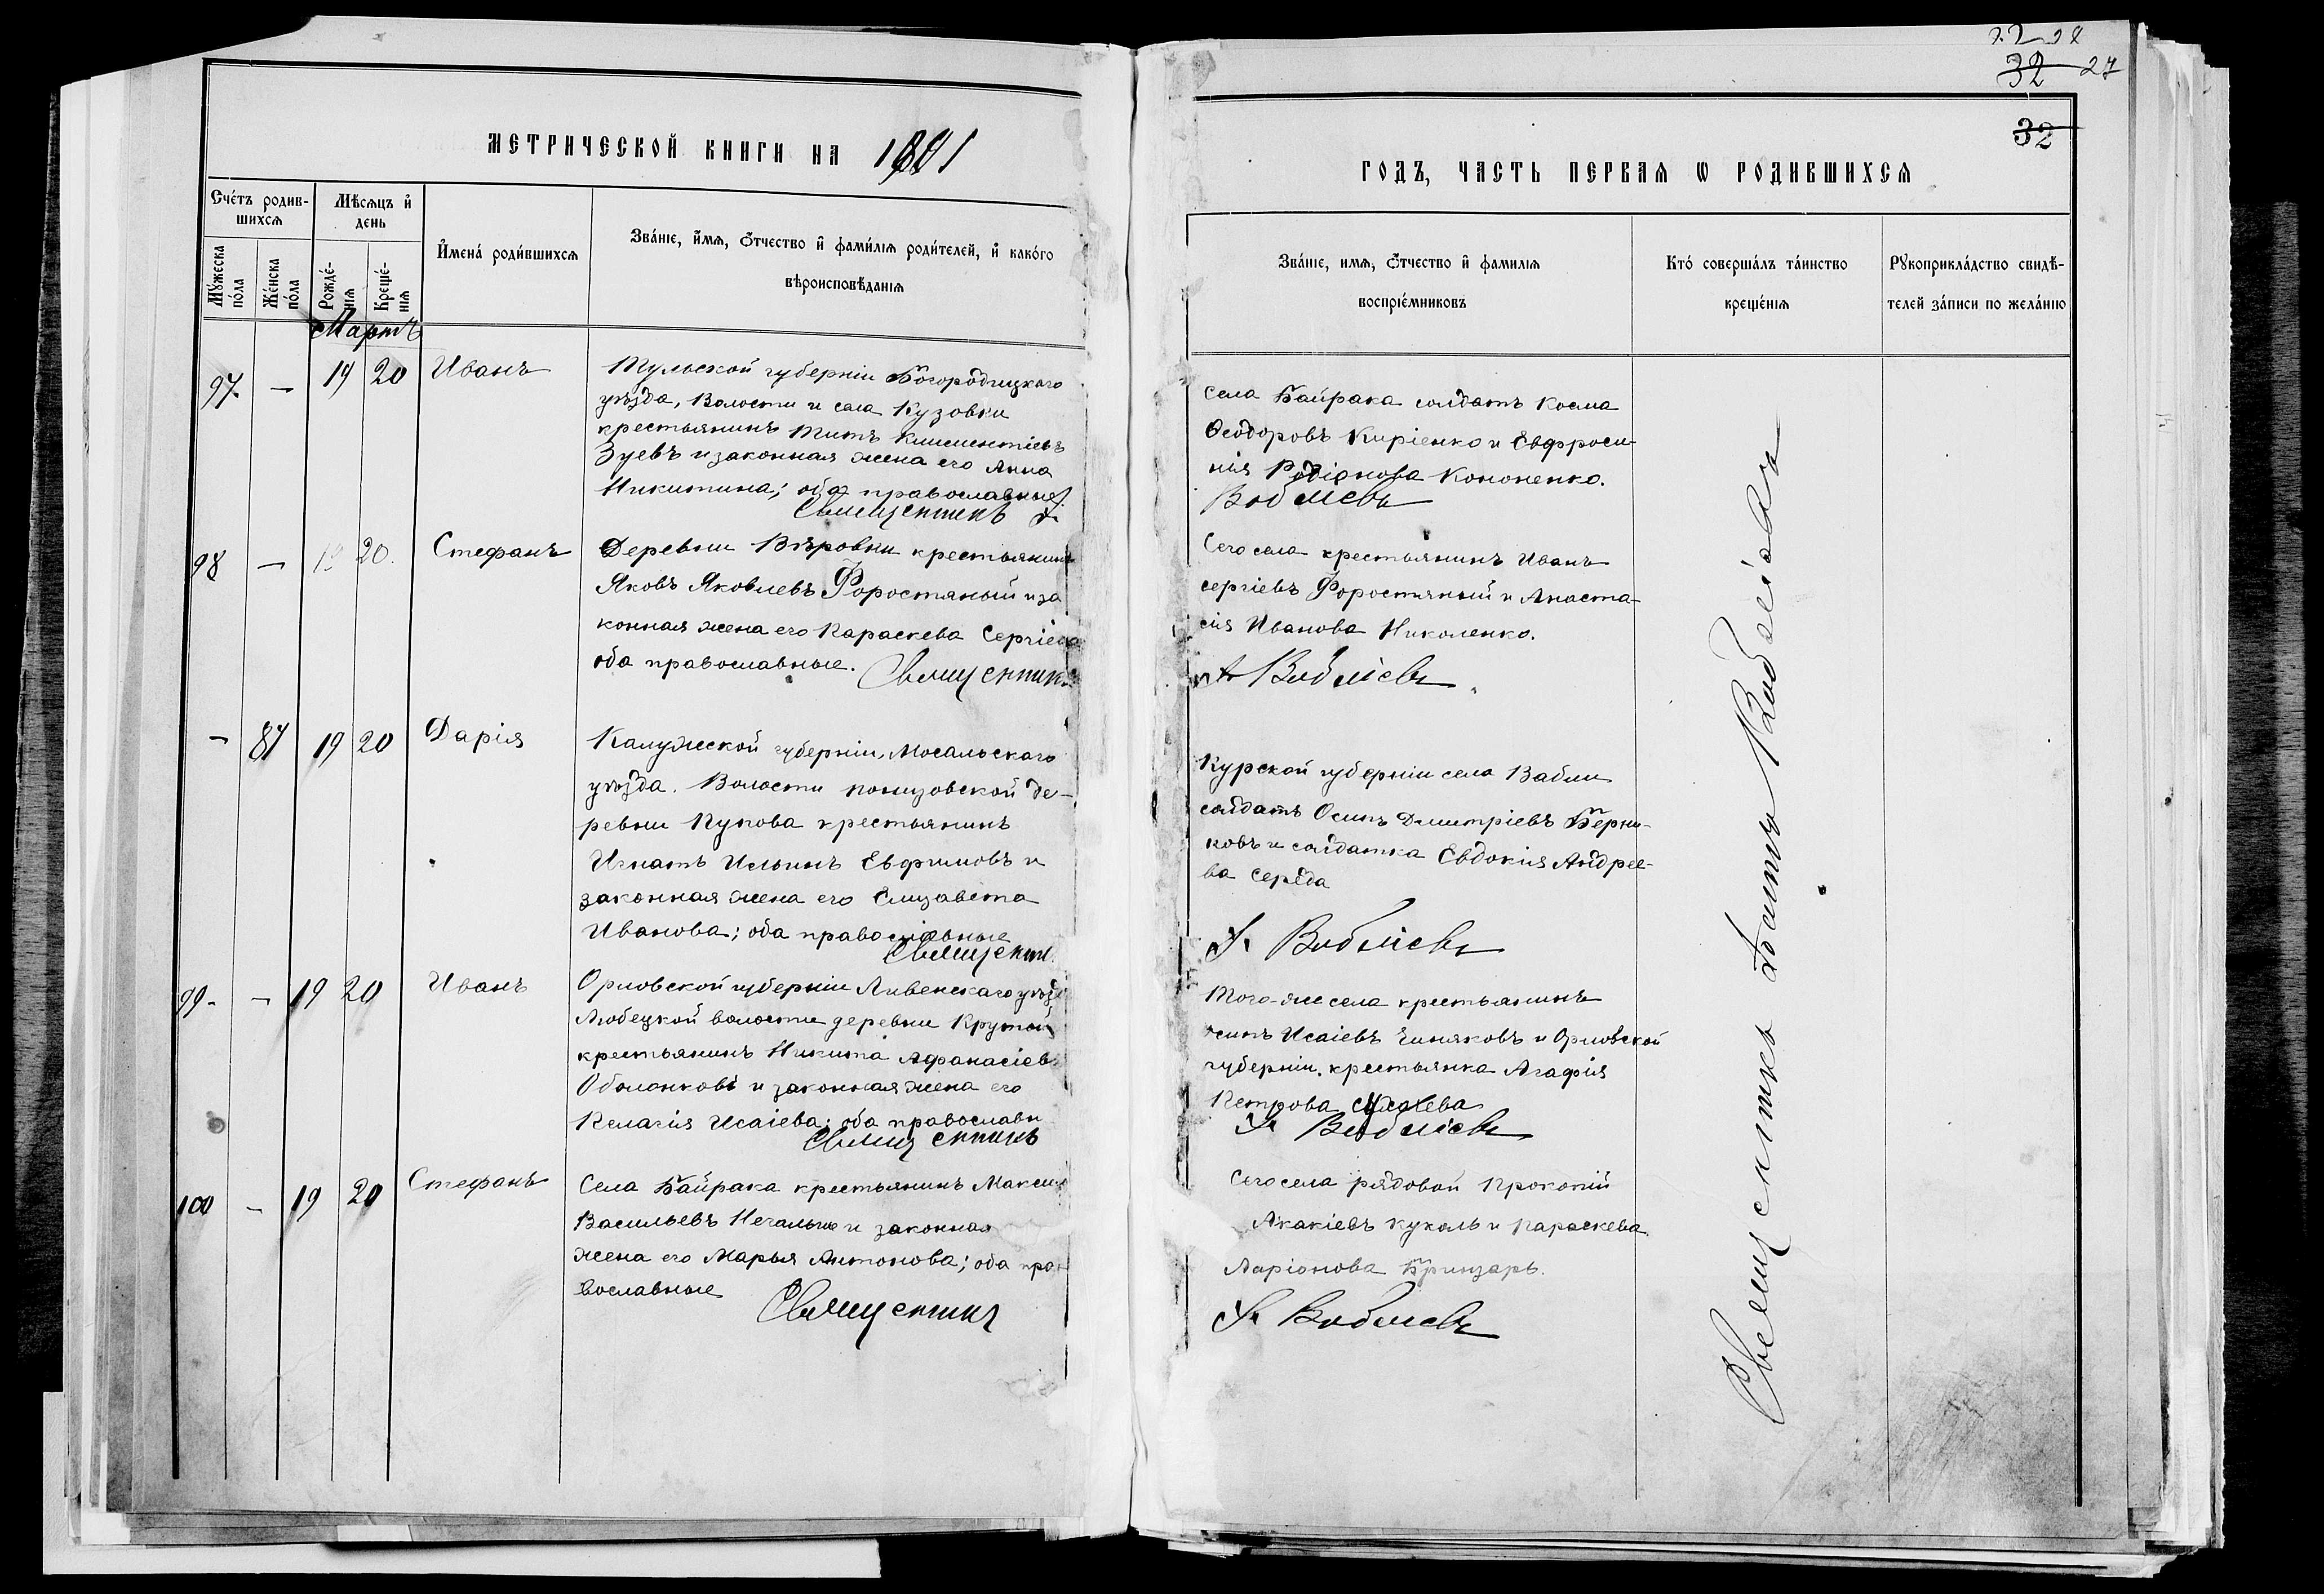 32 27
32
МЕТРИЧЕСКОЙ КНИГИ НА 1901
ГОДЪ, ЧАСТЬ ПЕРВАЯ Ѡ РОДИВШИХСЯ
Счетъ родив-
шихся
Мѣсяцъ и
день
Мужеска
пола
Женска
пола
Рожде-
нія
Креще-
нія
Имена родившихся
Званіе, имя, отчество и фамилія родителей, и какого
вѣроисповѣданія
Званіе, имя, отчество и фамилія
воспріемниковъ
Кто совершалъ таинство
крещенія
Рукоприкладство свидѣ-
телей записи по желанію
Мартъ
97. – 19 20 Иванъ
Тульской губерніи Богородицкаго
уѣзда, Волости и села Кузовки
крестьянинъ Титъ Климентіевъ
Зуевъ и законная жена его Анна
Никитина; оба православные
Священникъ
села Байрака солдатъ Косма
Ѳеодоровъ Киріенко и Евфроси-
нія Родіонова Кононенко.
98 – 20. Стефанъ
Деревни Вѣровки крестьянинъ
Яковъ Яковлевъ Форостяный и за
конная жена его Параскева Сергіева
оба православные. Священникъ
Сего села крестьянинъ Иванъ
Сергіевъ Форостяный и Анаста-
сія Иванова Николенко.
– 87 19 20 Дарія
Калужской губерніи, Мосальскаго
уѣзда. Волости понизовской де-
ревни Пупова крестьянинъ
Игнатъ Ильинъ Евфимовъ и
законная жена его Елизавета
Иванова; оба православные
Курской губерніи села Вабли
солдатъ Осипъ Дмитріевъ Берни-
ковъ и солдатка Евдокія Андрее-
ва Середа
99. – 19 20 Иванъ
Орловской губерніи Ливенскаго уѣзда
Любецкой волости деревни Крутой
крестьянинъ Никита Афанасіевъ
и законная жена его
Пелагія Исаіева; оба православн
Священникъ
Того-же села крестьянинъ
Осипъ Исаіевъ и Орловской
губерніи, крестьянка Агафія
Петрова
100 – 19 20 Стефанъ
Села Байрака крестьянинъ Максим
Васильевъ и законная
жена его Марья Антонова; оба пра
вославные Священник
Сего села рядовой Прокопій
Акакіевъ Куколь и Параскева
Ларіонова Бринзарь.
Священникъ